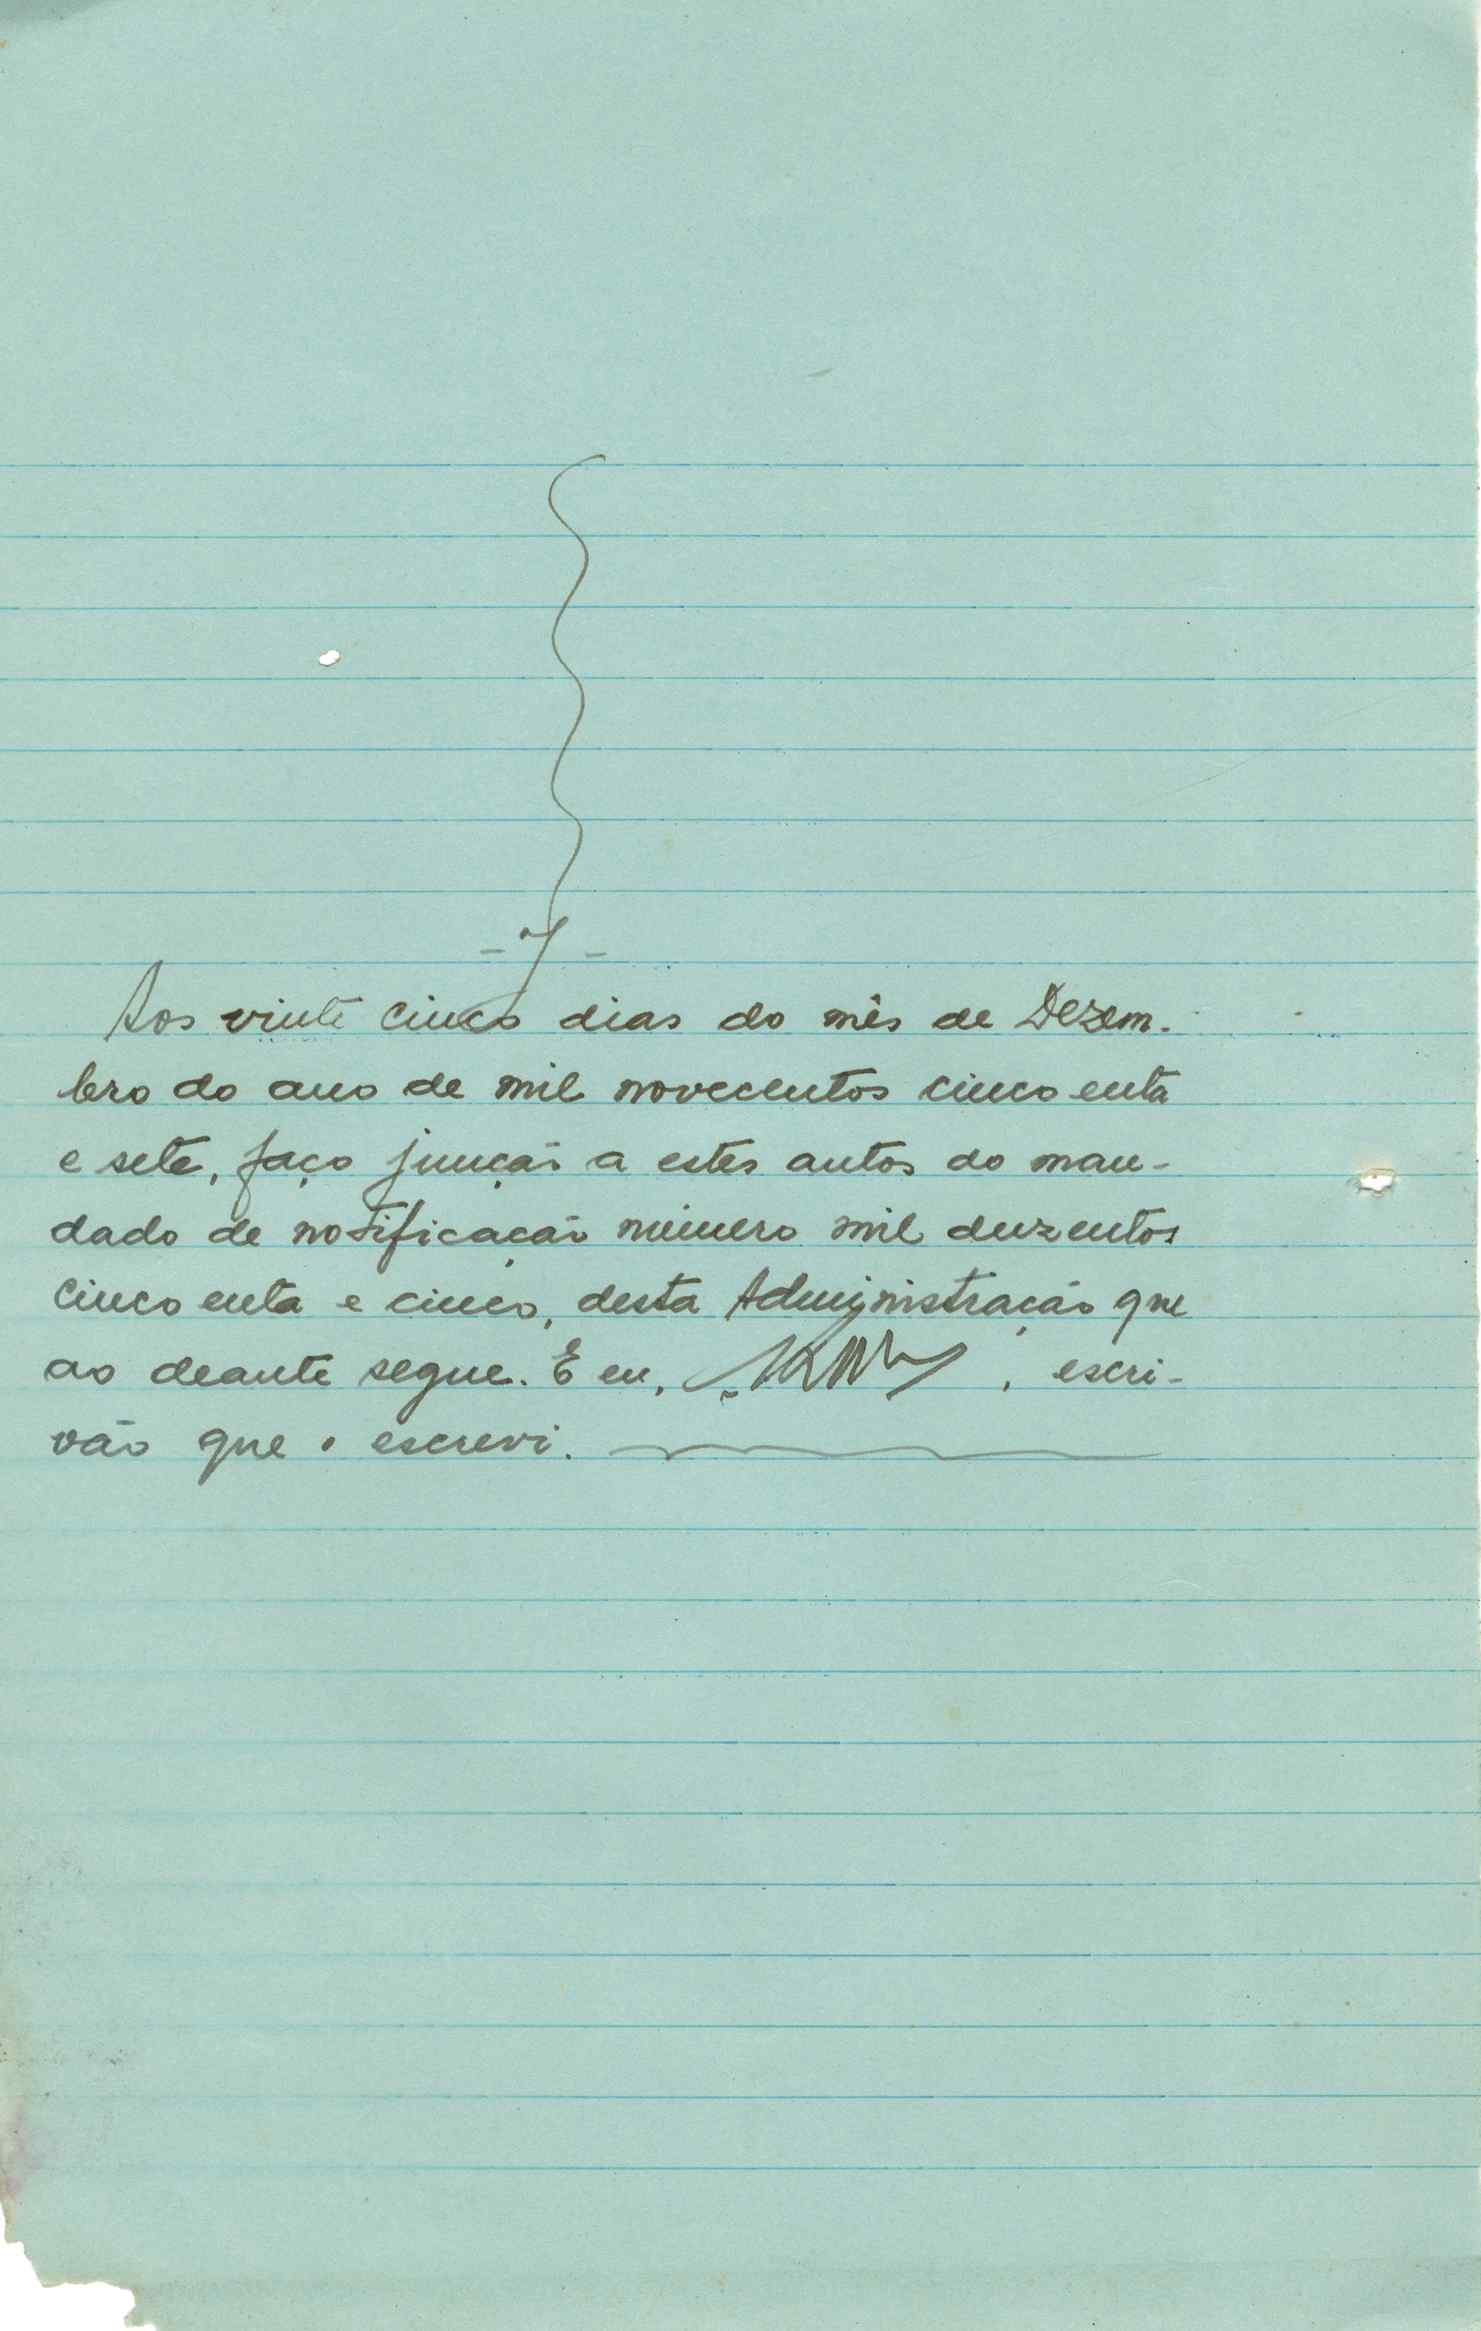 Aos vinte cinco dias do mês de Dezem-
bro do ano de mil novecentos cincoenta
e sete, faço junção a estes autos do man-
dado de notificação número mil duzentos
cincoenta e cinco, desta Administração que
ao deante segue. E eu, , escri-
vão que o escrevi.